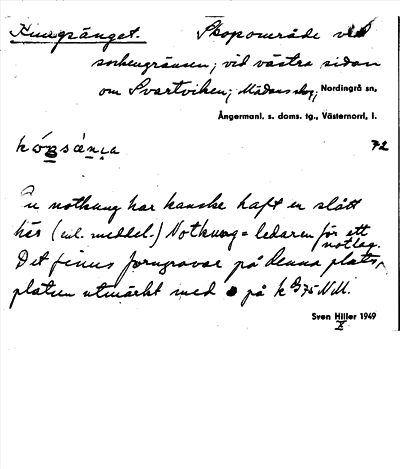 Kungsänget. Skopområde vid
sockengränsen; vid västra sidan
om Svartviken; Mädans skog; Nordingrå sn,
Ångermanl. s. doms. tg., Västernorrl. l.
72
En notkung har kanske haft en slått
här (enl. meddel.) Notkung = ledaren för ett
notlag.
Det finns forngravar på denna plats,
platsen utmärkt med på k 75 NM.
Sven Hiller 1949
X